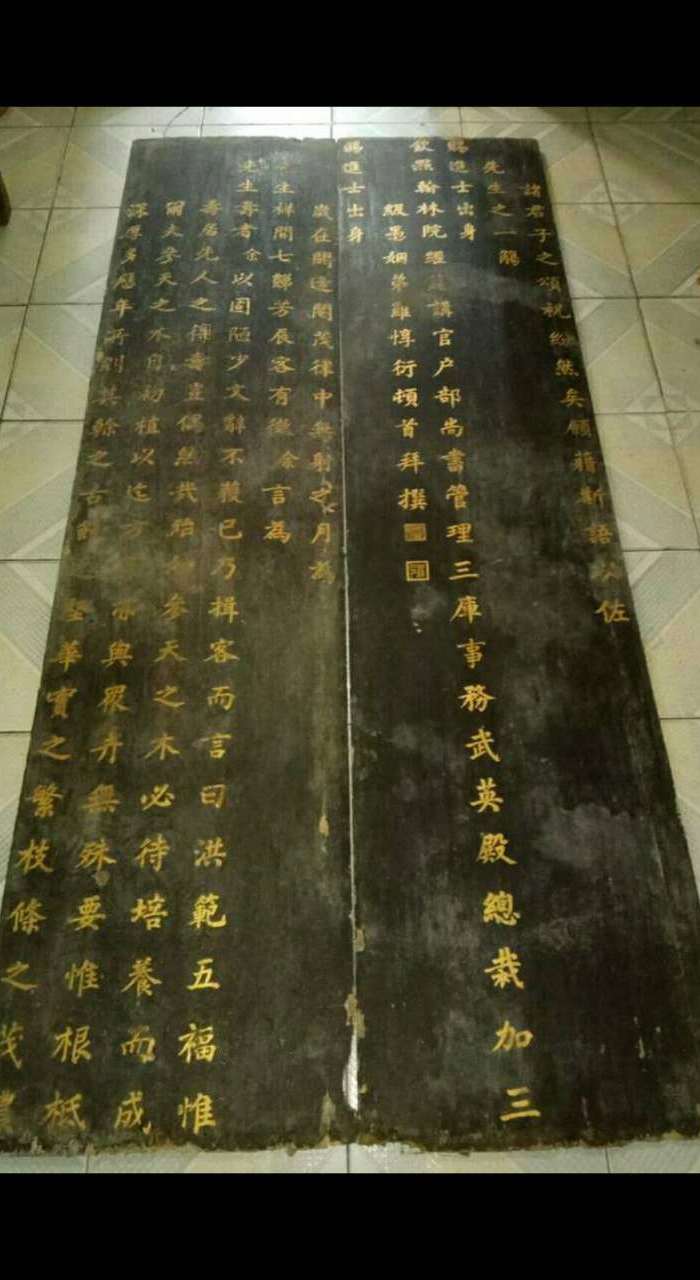 諸君子之頌祝紛然矣願藉新語以佐
先生之一觴
賜進士出身
欽點翰林院經筵講官户部尚書管理三庫事務武英殿總裁加三
級愚姻弟羅惇衍頓首拜撰
賜進士出身
歲在閼逢閹茂律中無射之月為
先生祥開七秩芳辰客有徵余言為
先生壽者余以固陋少文辭不獲已乃揖客而言曰洪範五福惟
壽居先人之得壽豈偶然哉殆參天之木必待培養而成
爾夫參天之木自初植以迄方亦與眾卉無殊要惟根柢
深厚多歷年所之古之堅華實之繁枝條之茂